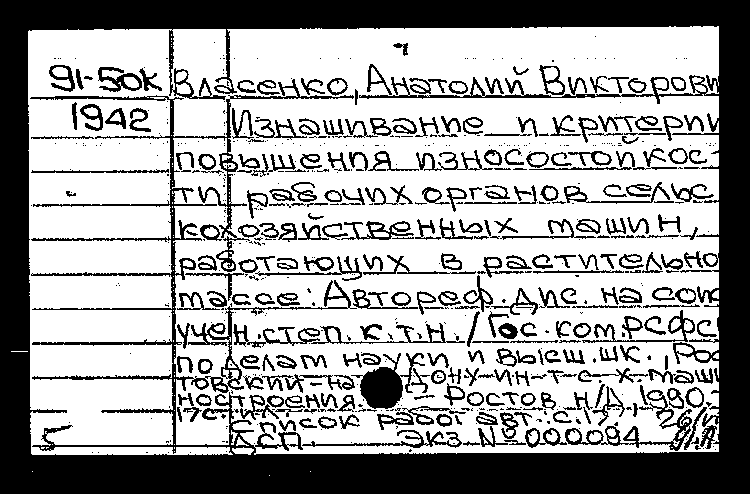 91-50к Власенко, Анатолий Викторови
1942 Изнашивание и критерии
повышения износостойкос-
ти рабочих органов сельс
кохозяйственных машин,
работающих в растительно
массе: Автореф. дис. на соис
учен. степ. к.т.н. / Гос. ком. РСФС
по делам науки и высш. шк., Рос
товский-на Дону ин-т с.-х. маши
ностроения. - Ростов н/Д, 1990.-
17с.: ил.
Список работ авт.: с.17
5 ДСП. Экз № 000094